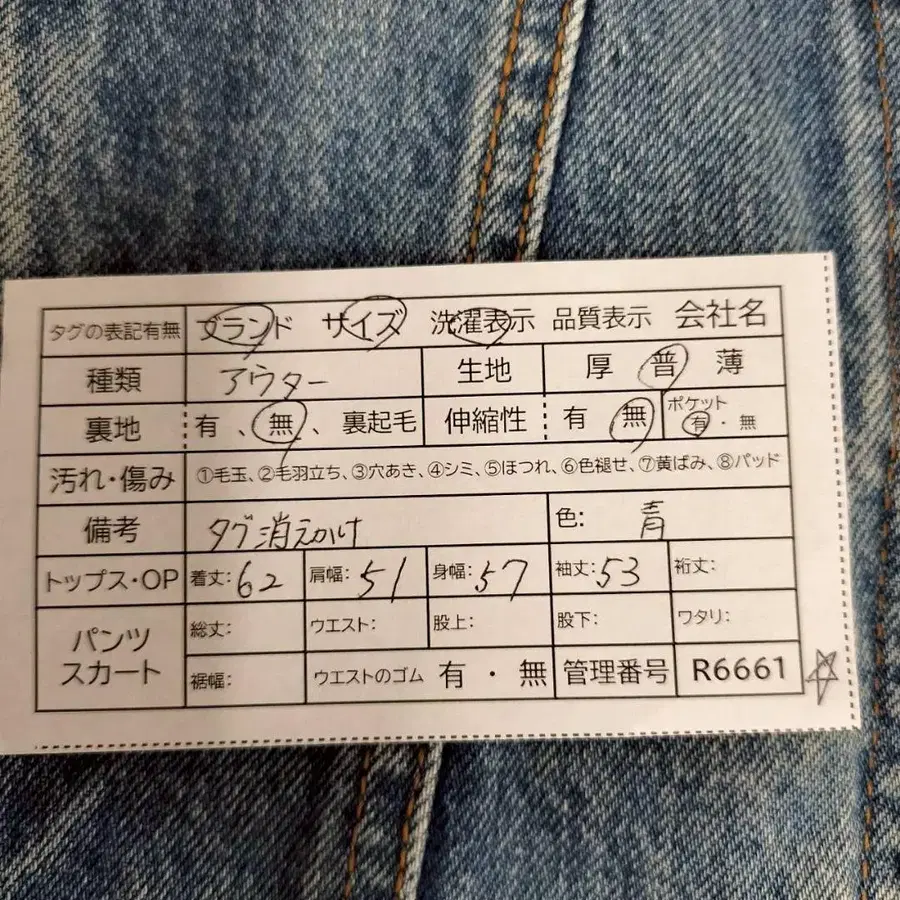 タグの表記有無 ブランド サイズ 洗濯表示 品質表示 会社名
種類 アウター 生地 厚 普 薄
裏地 有、無、裏起毛 伸縮性 有 無 ポケット 有・無
汚れ・傷み ①毛玉、②毛羽立ち、③穴あき、④シミ、⑤ほつれ、⑥色褪せ、⑦黄ばみ、⑧パッド
備考 タグ消えかけ 色: 青
トップス・OP 着丈:62 肩幅:51 身幅:57 袖丈:53 裄丈:
パンツ スカート 総丈: ウエスト: 股上: 股下: ワタリ:
裾幅: ウエストのゴム 有・無 管理番号 R6661